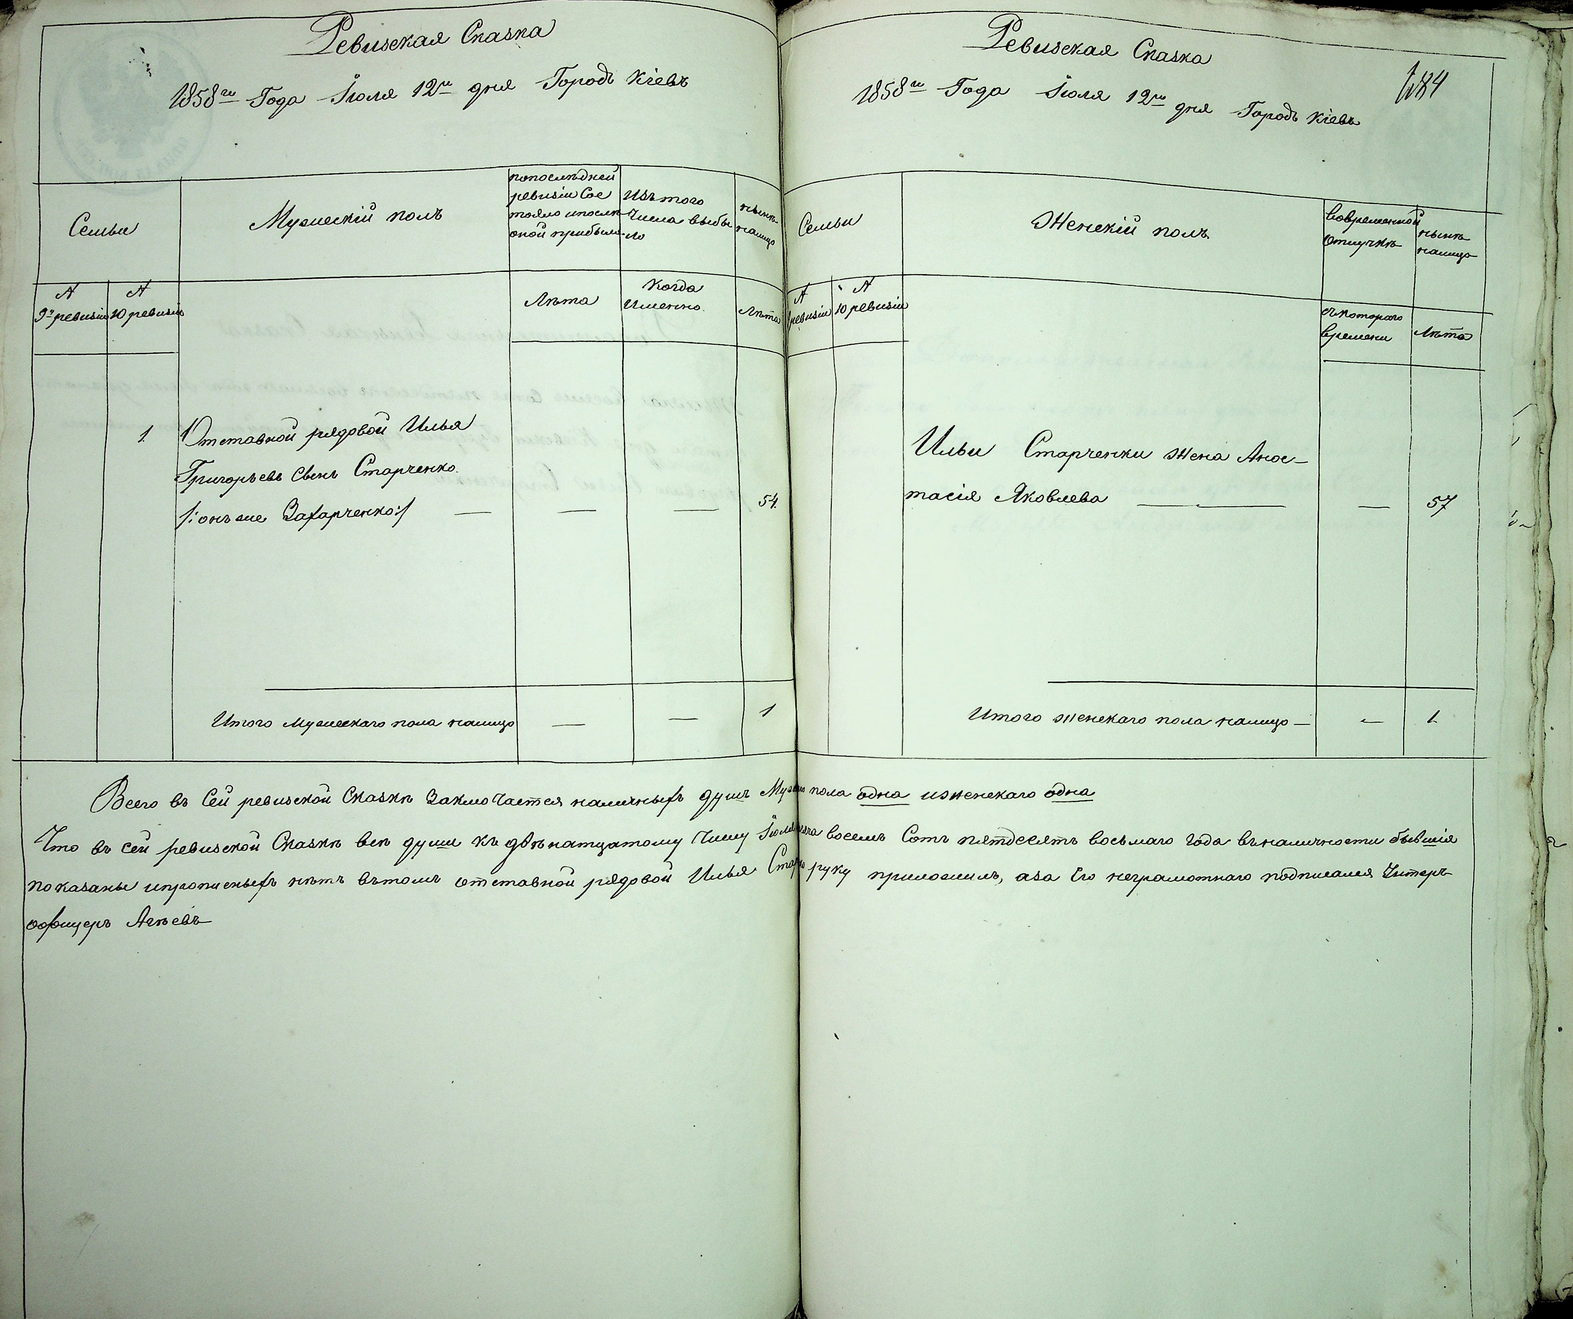 Ревизская Сказка
1858го Года Іюля 12го дня Городъ Кіевъ
Семьи
Мужескій полъ
попослѣдней
ревизіи Сос
тояло ипослѣ
оной прибыло
Изъ того
числа выбы
ло
нынѣ
налицо
№
9й ревизіи
№
10 ревизіи
Лѣта
Когда
Именно
Лѣта
1
Отставной рядовой Илья
Григорьевъ Сынъ Старченко
/: онъ же Захарченко :/ —
—
—
54.
Итого Мужескаго пола налицо
—
—
1
Ревизская Сказка
1858го Года Іюля 12го дня Городъ Кіевъ
684
Семьи
Женскій полъ
вовременной
отлучкѣ
нынѣ
налицо
№
ревизіи
№
10 ревизіи
съкотораго
времени
Лѣта
Ильи Старченки жена Анос-
тасія Яковлева —
—
57
Итого женскаго пола налицо —
—
1
Всего въ Сей ревизской Сказкѣ Заключается наличныхъ душъ пола одна иженскаго одна
Что въ сей ревизской Сказкѣ всѣ души къ двѣнатцатому Числу Іюля восемь Сотъ пятдесятъ восьмаго года въналичности бывшія
показаны ипрописныхъ нѣтъ вътомъ отставной рядовой Илья руку приложилъ, аза Его неграмотнаго подписался Унтеръ-
оофицеръ Агѣевъ